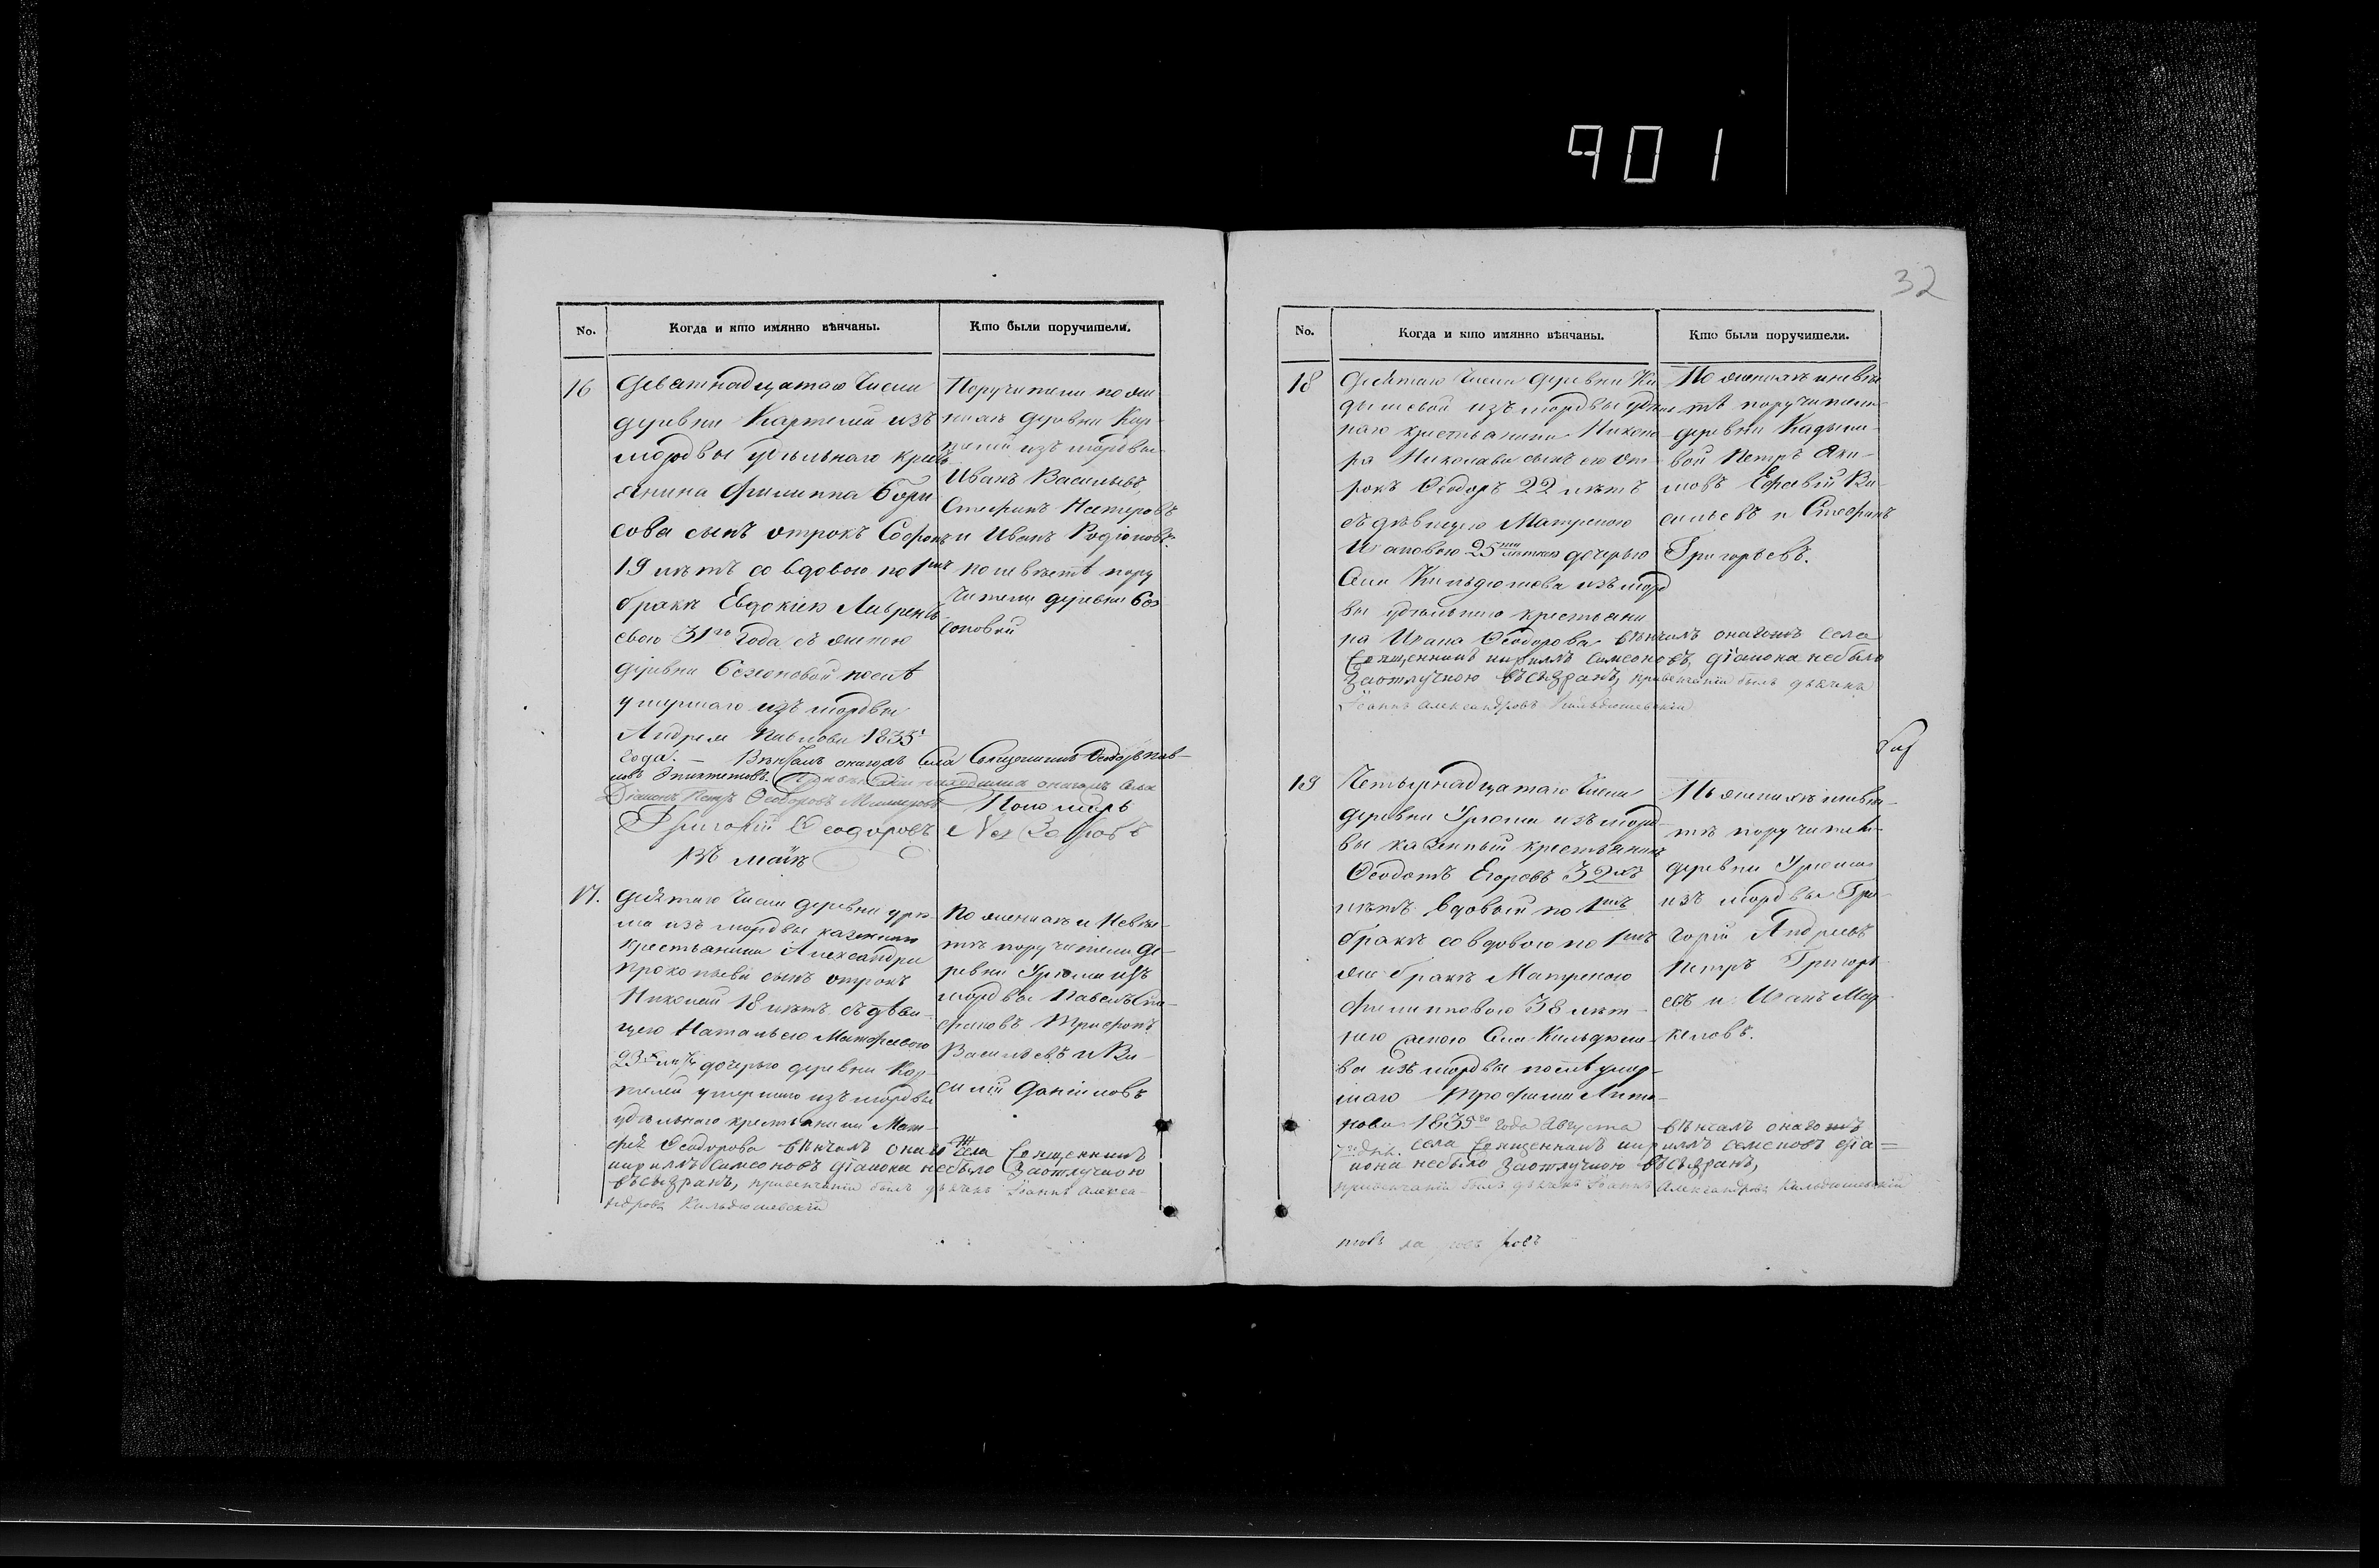 901
32
No. Когда и кто имянно вѣнчаны. Кто были поручители.
16
Деватнадцатаго Числа
деревни Картлеи изъ
мордвы удѣльнаго кресть
янина Филиппа Бори
сова сынъ отрокъ Софронъ
19 лѣтъ со вдовою по 1мъ
бракѣ Евдокіею Лаврентье
вою 31го года, съ женою
деревни Бозсоновой послѣ
умершаго изъ мордвы
Андрея Павлова 1835
года. — Вѣнчалъ онагожъ Села Священникъ Ѳеодоръ Пав-
ловъ Эпиктетовъ. онагожъ Села
Діаконъ Петръ Ѳеодоровъ Пономарь
Григорій Ѳеодоровъ
Въ маѣ
Поручители по же
нихѣ деревни Кар
тлеи изъ мордвы
Иванъ Васильевъ,
Стефанъ Нестеровъ
и Иванъ Родіоновъ.
по невѣстѣ пору
чители деревни Боз
соновой
17.
Десятаго Числа деревни Урю
ма изъ мордвы казеннаго
крестьянина Александра
Прокопьева сынъ отрокъ
Николай 18 лѣтъ съ дѣви
цею Натальею Матфеевою
23х лѣтъ дочерью деревни Кар
тлеи умершаго изъ мордвы
удѣльнаго крестьянина Мат
фея Ѳеодорова вѣнчалъ онагожъ Села Священникъ
Кириллъ Симеоновъ діакона небыло Заотлучкою
въ Сызрань, привенчаніи былъ дьячекъ Іоаннъ Алекса-
ндровъ Кильдюшевскій
По женихѣ и Невѣс
тѣ поручители Де
ревни Урюма изъ
мордвы Павелъ Сте
фановъ Трифонъ
Васильевъ и Ва
силій Даніиловъ
No. Когда и кто имянно вѣнчаны. Кто были поручители.
18
Десятаго Числа деревни Ка
дышевой изъ мордвы удѣль
наго крестьянина Никано
ра Николаева сынъ его от
рокъ Ѳеодоръ 22 лѣтъ
съ дѣвицею Матреною
Ивановою 25ти лѣтнею дочерью
Села Кильдюшева изъ морд
вы удѣльнаго крестьяни
на Ивана Ѳеодорова вѣнчалъ онагожъ Села
Священникъ Кириллъ Симеоновъ, діакона небыло
Заотлучкою въ Сызрань, привенчаніи былъ дьячекъ
Іоаннъ Александровъ Кильдюшевскій
По женихѣ и невѣс
тѣ поручители
деревни Кадыше
вой Петръ Яки
мовъ Ва
сильевъ и Стефанъ
Григорьевъ.
19
Четырнадцатаго Числа
деревни Урюма изъ морд
вы казенный крестьянинъ
Ѳеодотъ Егоровъ 32хъ
лѣтъ вдовый по 1мъ
бракѣ со вдовою по 1мъ
же бракѣ Матреною
Филипповою 38 лѣт
нею женою Села Кильдюше
ва изъ мордвы послѣ умер
шаго Трофима Анто
нова 1835го года Августа вѣнчалъ онагожъ
дня. Села Священникъ Кириллъ Семеновъ дїа=
кона небыло Заотлучкою въ Сызрань,
привенчаніи былъ дьячекъ Іоаннъ Александровъ Кильдюшевскій
По женихѣ и невѣс
тѣ поручители
деревни Урюма
изъ мордвы Гри
горій Андреевъ
Петръ Григорь
евъ и Иванъ Мар
келовъ.